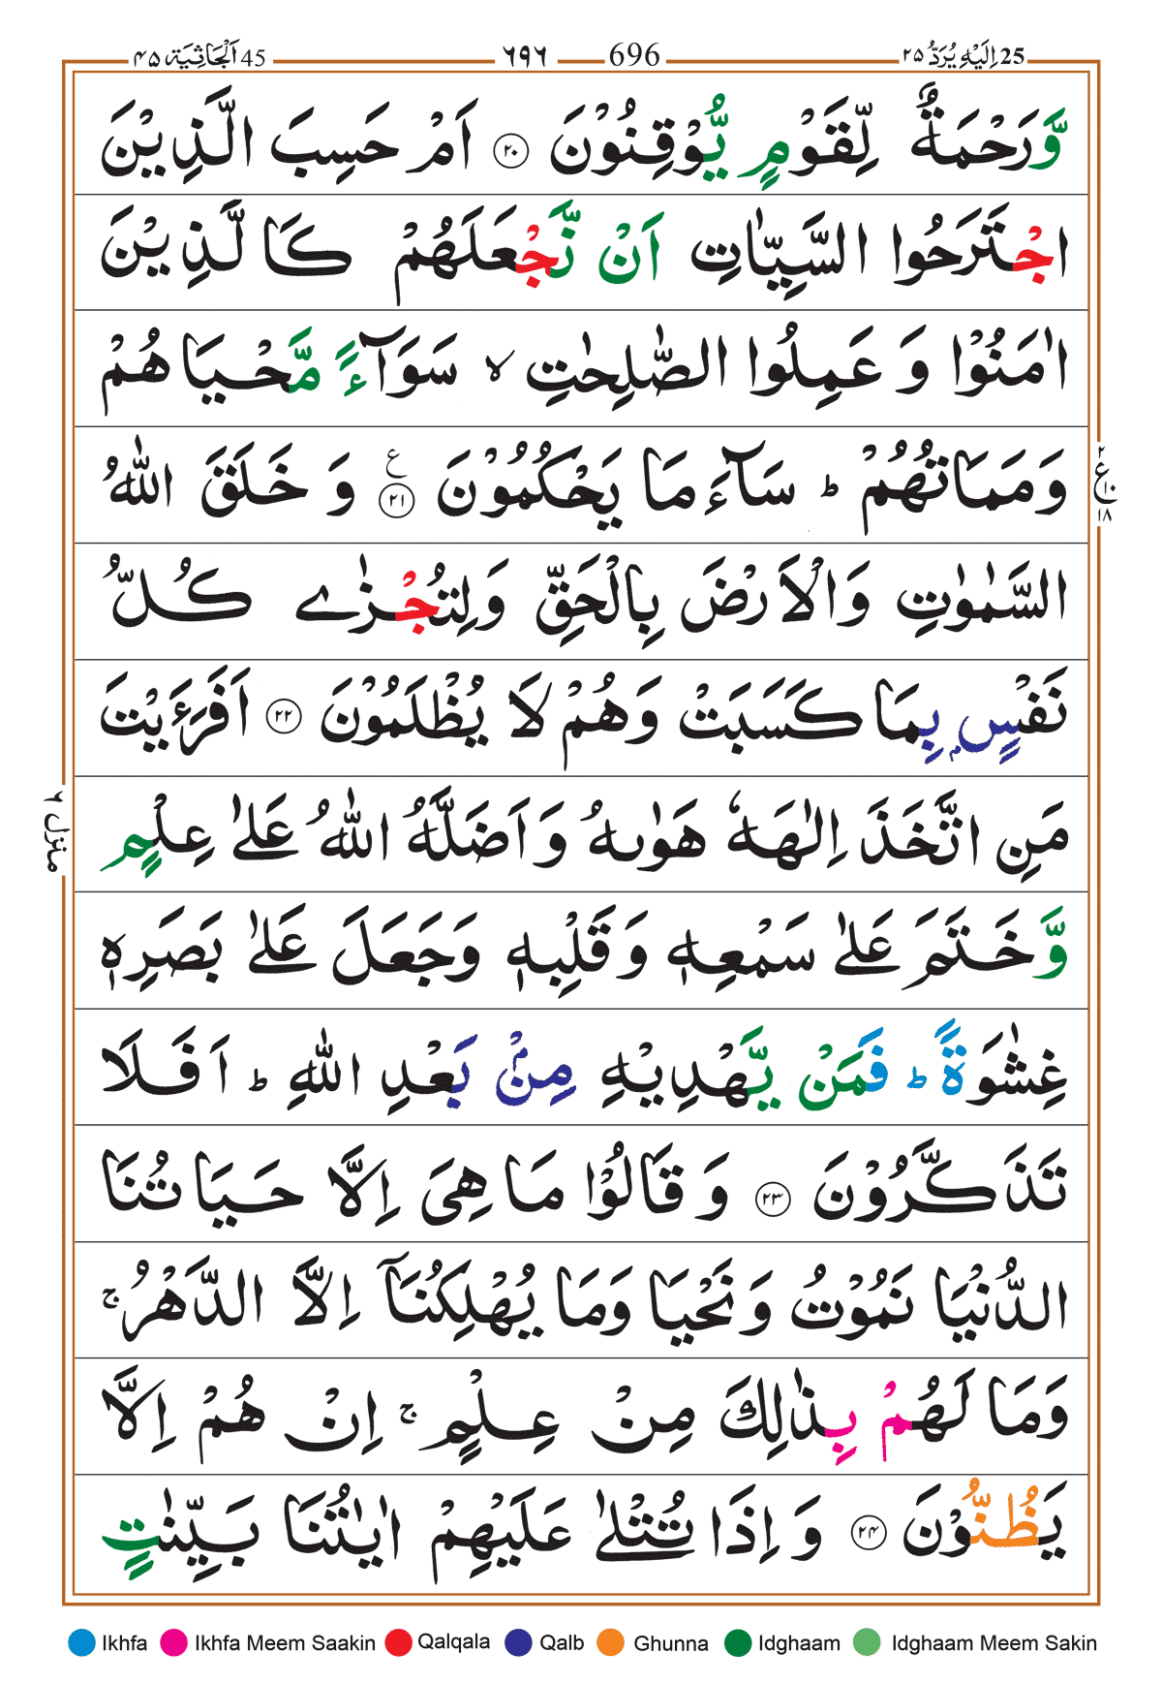 45 اَلْجَاثِيَة ۴۵ ۶۹۶ 696 25 اِلَيْهِ يُرَدُّ ۲۵
وَّرَحْمَةٌ لِّقَوْمٍ يُّوْقِنُوْنَ ۲۰ اَمْ حَسِبَ الَّذِيْنَ
اجْتَرَحُوا السَّيِّاٰتِ اَنْ نَّجْعَلَهُمْ كَالَّذِيْنَ
اٰمَنُوْا وَ عَمِلُوا الصّٰلِحٰتِ ۙ سَوَآءً مَّحْيَاهُمْ
وَمَمَاتُهُمْ ؕ سَآءَ مَا يَحْكُمُوْنَ ۲۱ ع وَ خَلَقَ اللّٰهُ
۲
ع ۱۰
۱۸
السَّمٰوٰتِ وَالْاَرْضَ بِالْحَقِّ وَلِتُجْزٰى كُلُّ
نَفْسٍۭ بِمَا كَسَبَتْ وَهُمْ لَا يُظْلَمُوْنَ ۲۲ اَفَرَءَيْتَ
مَنِ اتَّخَذَ اِلٰهَهٗ هَوٰىهُ وَاَضَلَّهُ اللّٰهُ عَلٰى عِلْمٍ
منزل ۶
وَّخَتَمَ عَلٰى سَمْعِهٖ وَقَلْبِهٖ وَجَعَلَ عَلٰى بَصَرِهٖ
غِشٰوَةً ؕ فَمَنْ يَّهْدِيْهِ مِنْۢ بَعْدِ اللّٰهِ ؕ اَفَلَا
تَذَكَّرُوْنَ ۲۳ وَقَالُوْا مَا هِىَ اِلَّا حَيَاتُنَا
الدُّنْيَا نَمُوْتُ وَنَحْيَا وَمَا يُهْلِكُنَآ اِلَّا الدَّهْرُ ۚ
وَمَا لَهُمْ بِذٰلِكَ مِنْ عِلْمٍ ۚ اِنْ هُمْ اِلَّا
يَظُنُّوْنَ ۲۴ وَاِذَا تُتْلٰى عَلَيْهِمْ اٰيٰتُنَا بَيِّنٰتٍ
Ikhfa Ikhfa Meem Saakin Qalqala Qalb Ghunna Idghaam Idghaam Meem Sakin